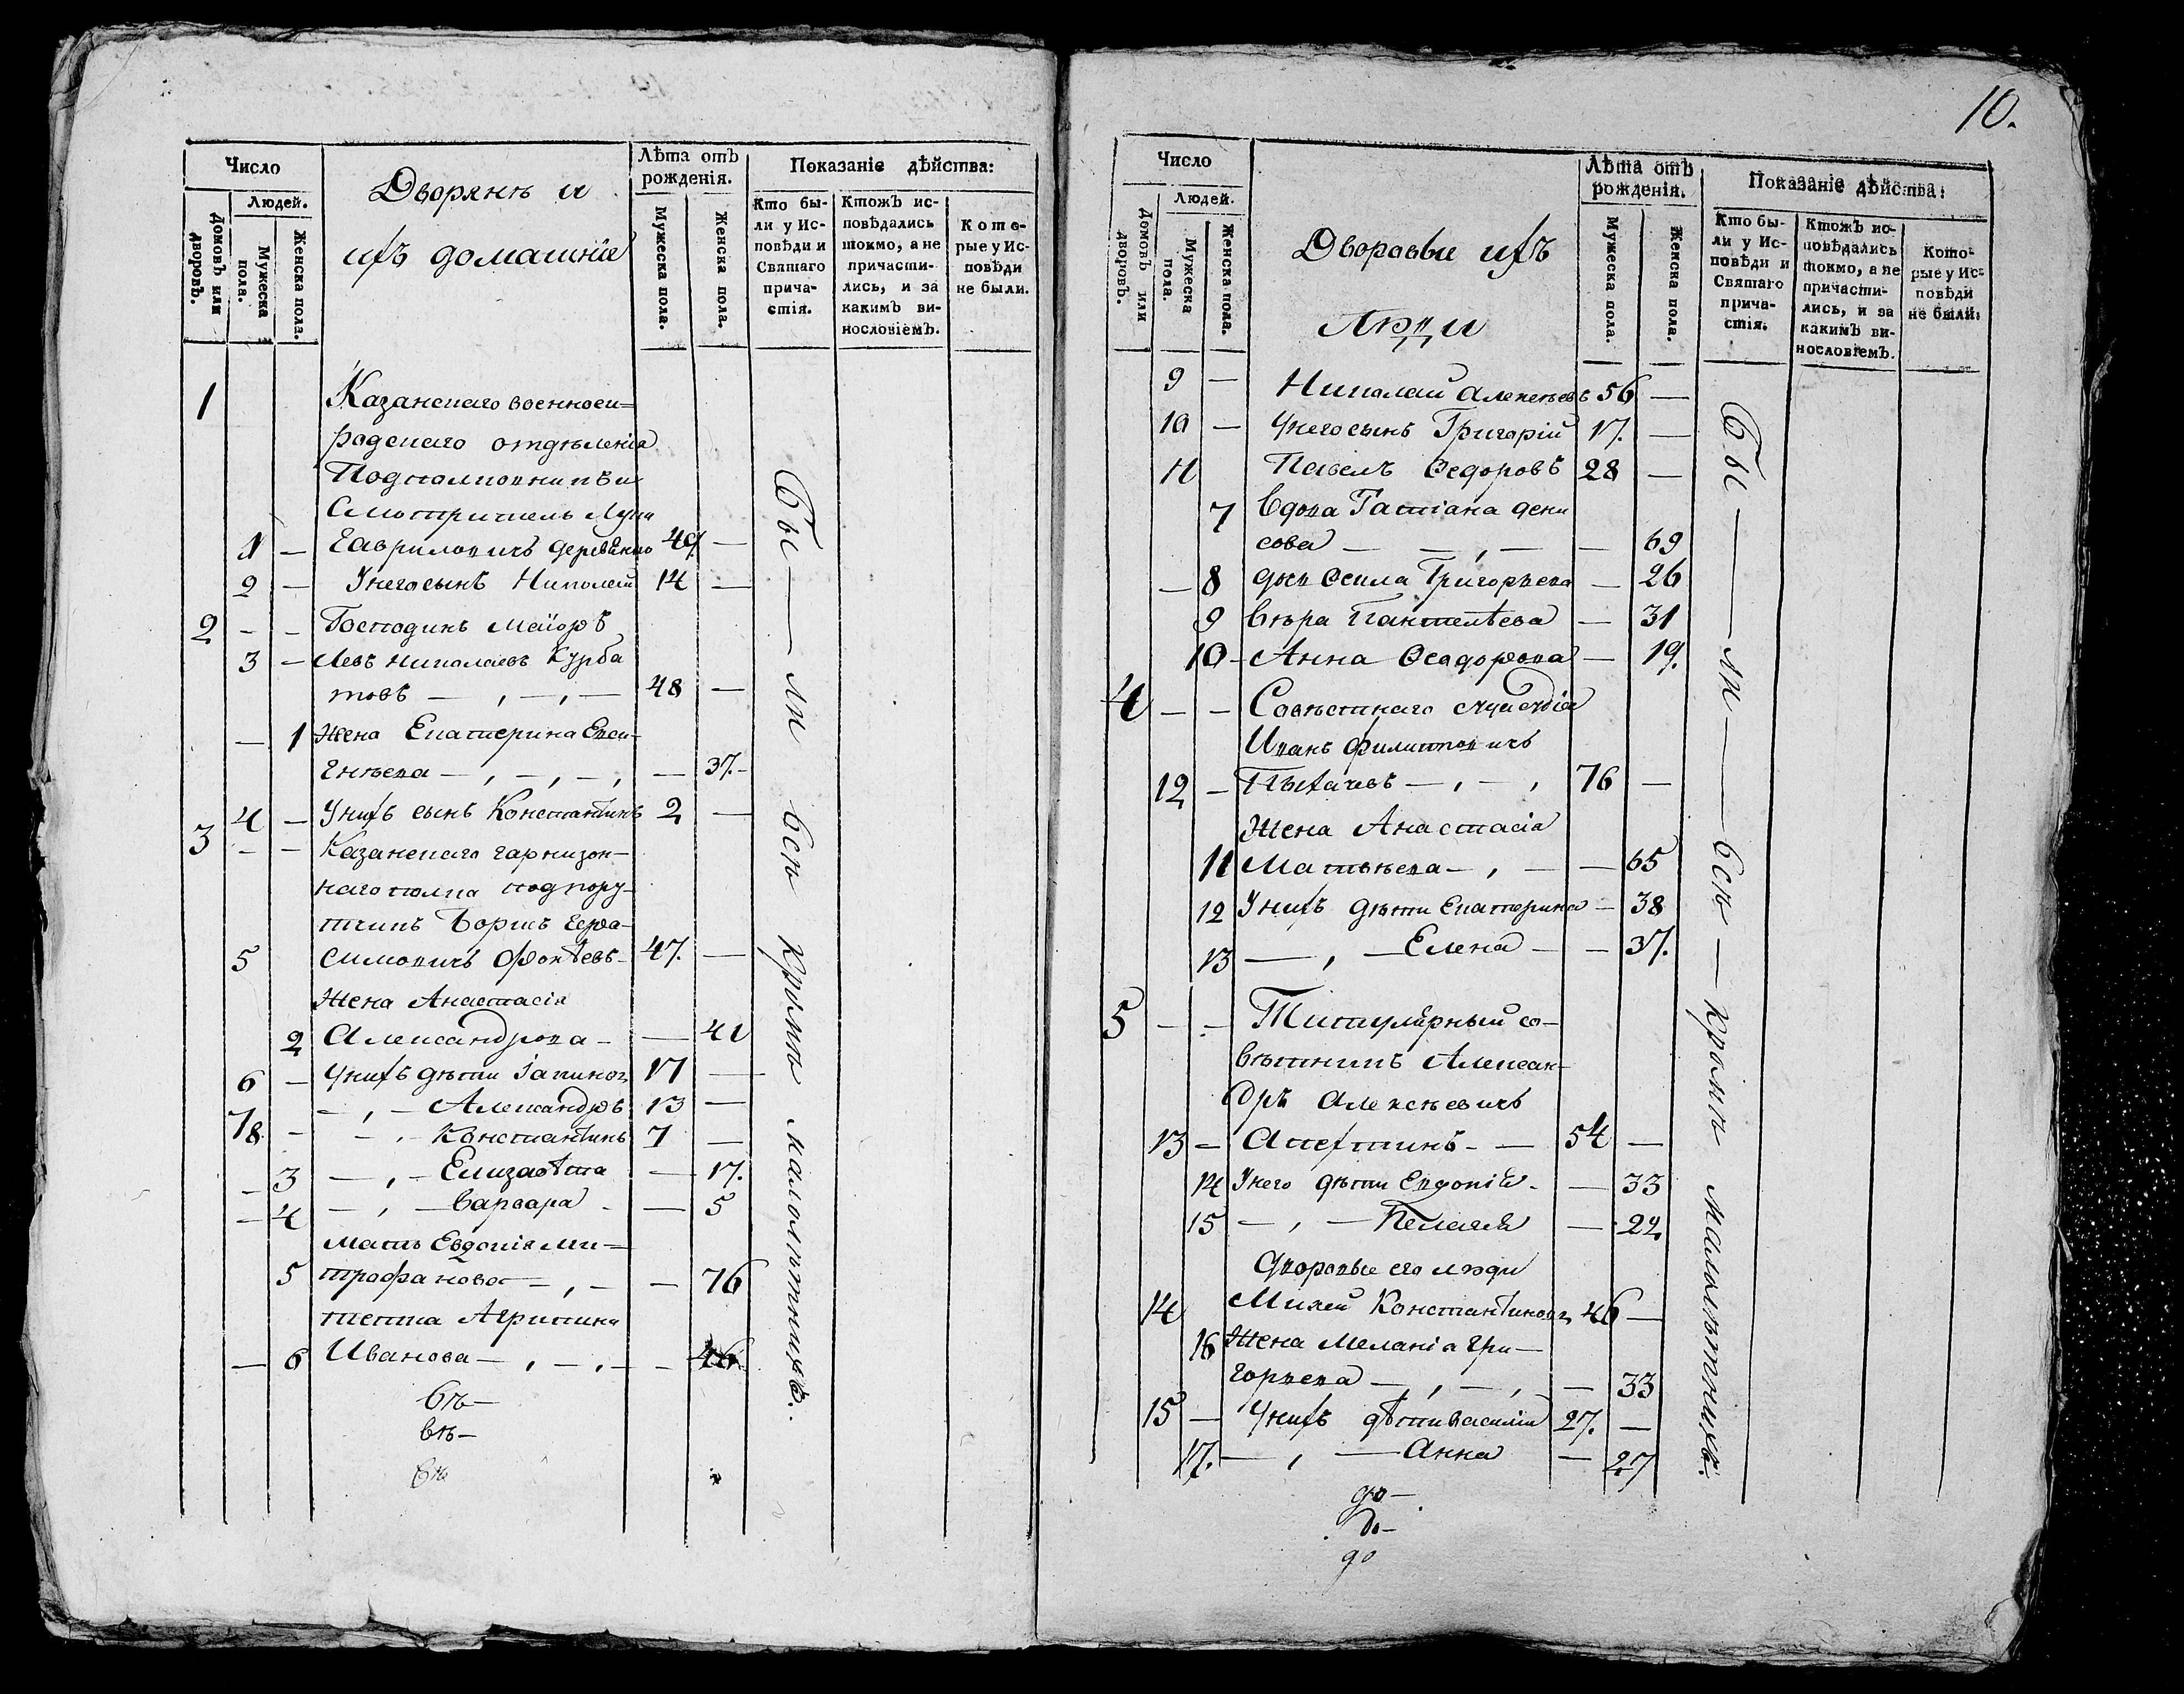 Число
Дворянѣ и
ихъ домашніе
Лѣта отъ рожденія.
Показаніе дѣйства:
Людей.
Домовъ или дворовъ.
Мужеска пола.
Женска пола.
Мужеска пола.
Женска пола.
Кто были у Исповѣди и Святаго причастія.
Ктожъ исповѣдались токмо, а не причастились, и за какимъ винословіемъ.
Которые у Исповѣди не были.
1 Казанскаго военноси=
родскаго отдѣленія
Подполковникъ и
Смотритель Лука
1 — Гавриловичъ 49 —
2 — У него сынъ Николай 14 —
2 - - Господинъ Маіоръ
3 — Левъ Николаевъ Курба
товъ — , — , — 48 —
— 1 Жена Екатерина Евси-
гнѣева — , — , — , — 37. -
4 — У нихъ сынъ Константинъ 2 —
3 - - Казанскаго гарнизон-
наго полка подпору-
тчикъ Борисъ Гера-
5 симовичъ Фокѣевъ - 47. —
Жена Анастасія
2 Александрова - — 41
6 — У нихъ дѣти 17 —
7 — , — Александръ 13 —
8 - — , - Константинъ 7 —
- 3 — , - Елизавѣта — 17.
- 4 — , — Варвара - — 5
Мать Евдокія Ми=
5 трофанова — , — — 76
тетка Агрипина
— 6 Иванова — , — , — - 46
вѣ—
вѣ—
вѣ
Бы — ли всѣ кромѣ малолѣтнихъ.
10.
Число
Дворовые ихъ
Люди
Лѣта отъ рожденія.
Показаніе дѣйства:
Людей.
Домовъ или дворовъ.
Мужеска пола.
Женска пола.
Мужеска пола.
Женска пола.
Кто были у Исповѣди и Святаго причастія.
Ктожъ исповѣдались токмо, а не причастились, и за какимъ винословіемъ.
Которые у Исповѣди не были.
9 — Николай Алексѣевъ 56 —
10 — У него сынъ Григорій 17. —
11 Павелъ Ѳедоровъ 28 —
7 Вдова Татіана Дени
сова — — , — — 69
— 8 Григорьева — 26
9 Вѣра Пантелѣева — 31
10 - Анна Ѳеодорова — 19.
4 — — Совѣстнаго судія
Иванъ Филиповичъ
12 — Пыхачевъ — , — , 76 —
Жена Анастасія
11 Матвѣева — , — — 65
12 У нихъ дѣти Екатерина — 38
13 — , — Елена — — 37.
5 - - Титулярный со-
вѣтникъ Алексан-
дръ Алексѣевичъ
13 — Апехтинъ - — 54 —
14 У него дѣти Евдокія - — 33
15 — , — Пелагея — 22
Дворовые его люди
14 Михей Константиновъ 46 —
16 Жена Меланіа Гри—
горьева — , — , — 33
15 — У нихъ дѣти Василій 27. —
17. — , — Анна — 27
до—
до—
до
Бы — ли — всѣ — кромѣ малолѣтнихъ.